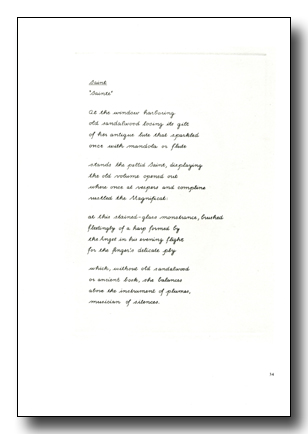 Saint
"Sainte"
At the window harbouring
old sandalwood losing its gilt
of her antique lute that sparkled
once with mandola or flute
stands the pallid Saint, displaying
the old volume opened out
where once at vespers and compline
rustled the Magnificat:
at this stained-glass monstrance, brushed
fleetingly of a harp formed by
the Angel in his evening flight
for the finger's delicate
which, without old sandalwood
or ancient book, she balances
above the instrument of plumes,
musician of silences.
14